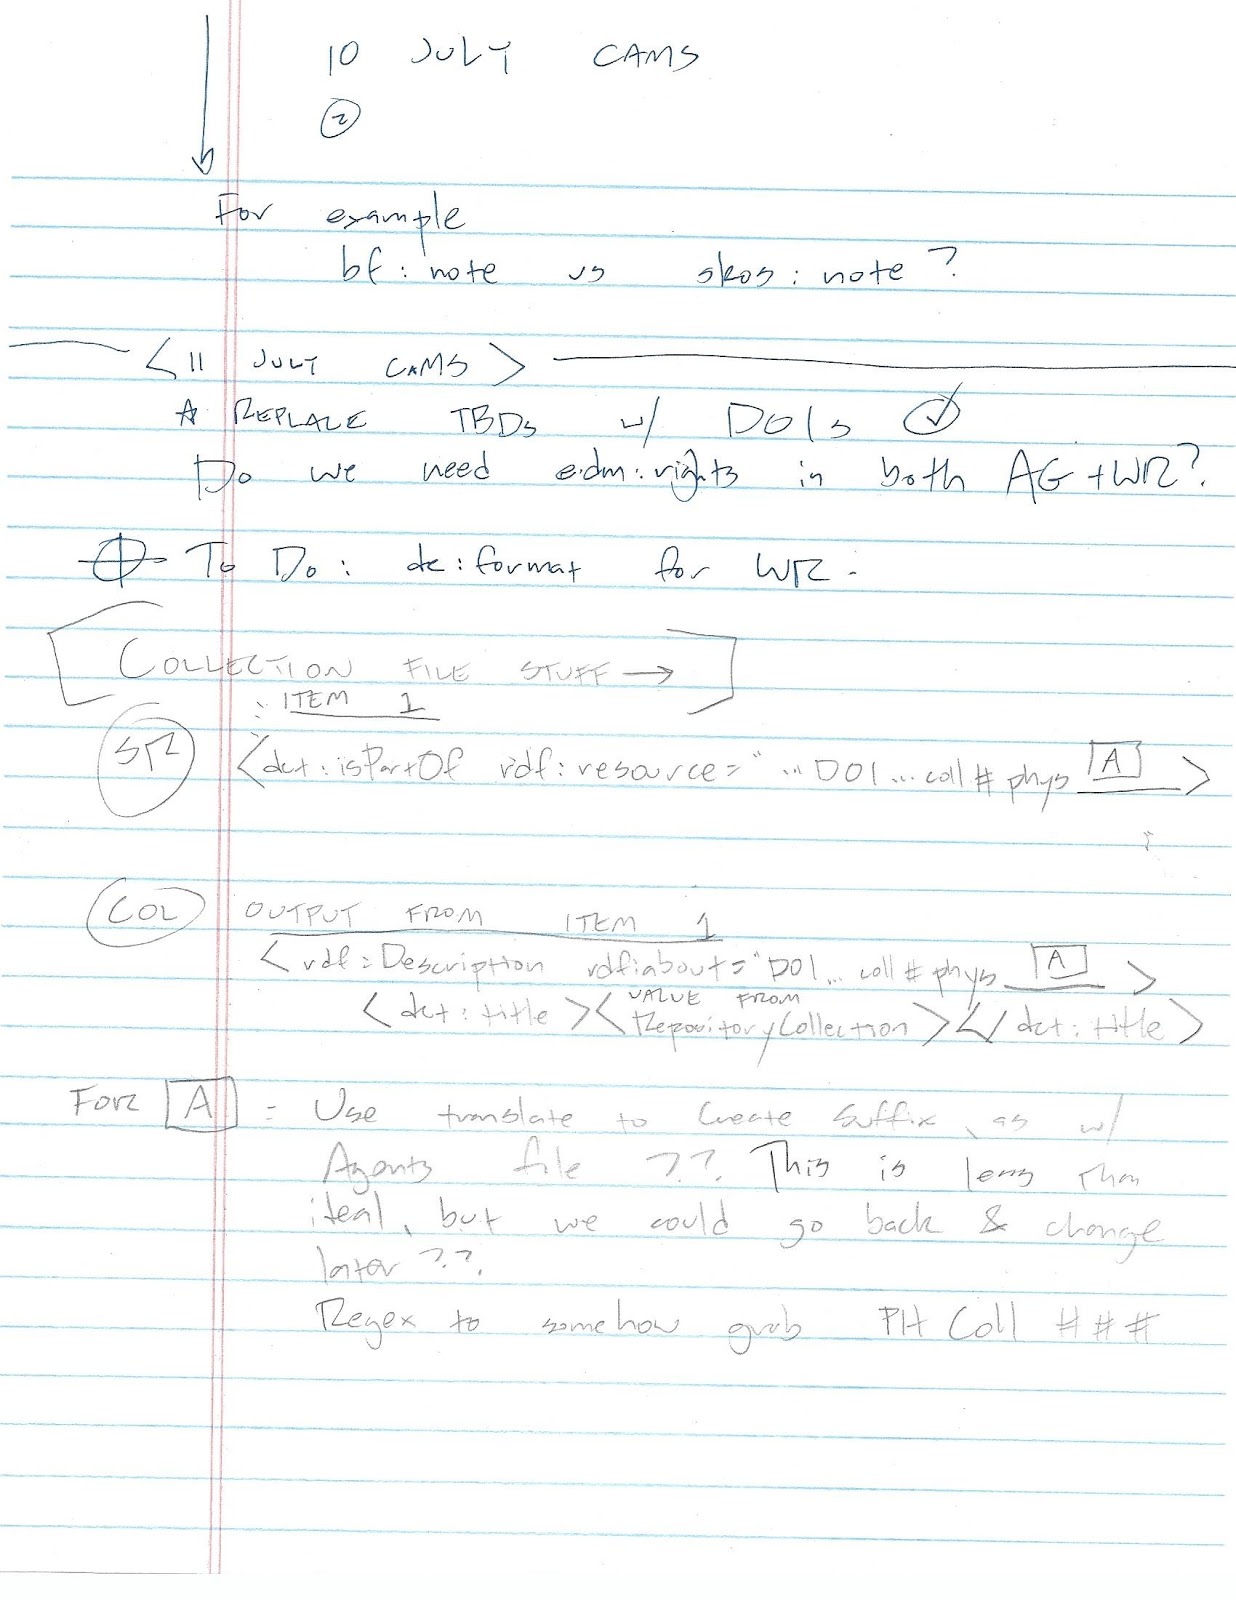 10 JULY CAMS
2
For example
bf:note vs skos:note?
<11 JULY CAMS>
☆ REPLACE TBDs w/ DOIs ✓
Do we need edm:rights in both AG + WR?
To Do: dc:format for WR.
COLLECTION FILE STUFF →
: ITEM 1
SR <dct:isPartOf rdf:resource="...DOI...coll#phys A >
COL OUTPUT FROM ITEM 1
<rdf:Description rdf:about="DOI...coll#phys A >
<dct:title><VALUE FROM RepositoryCollection></dct:title>
FOR A = Use translate to create suffix, as w/
Agents file ??. This is less than
ideal, but we could go back & change
later ??.
Regex to somehow grab PH Coll ###